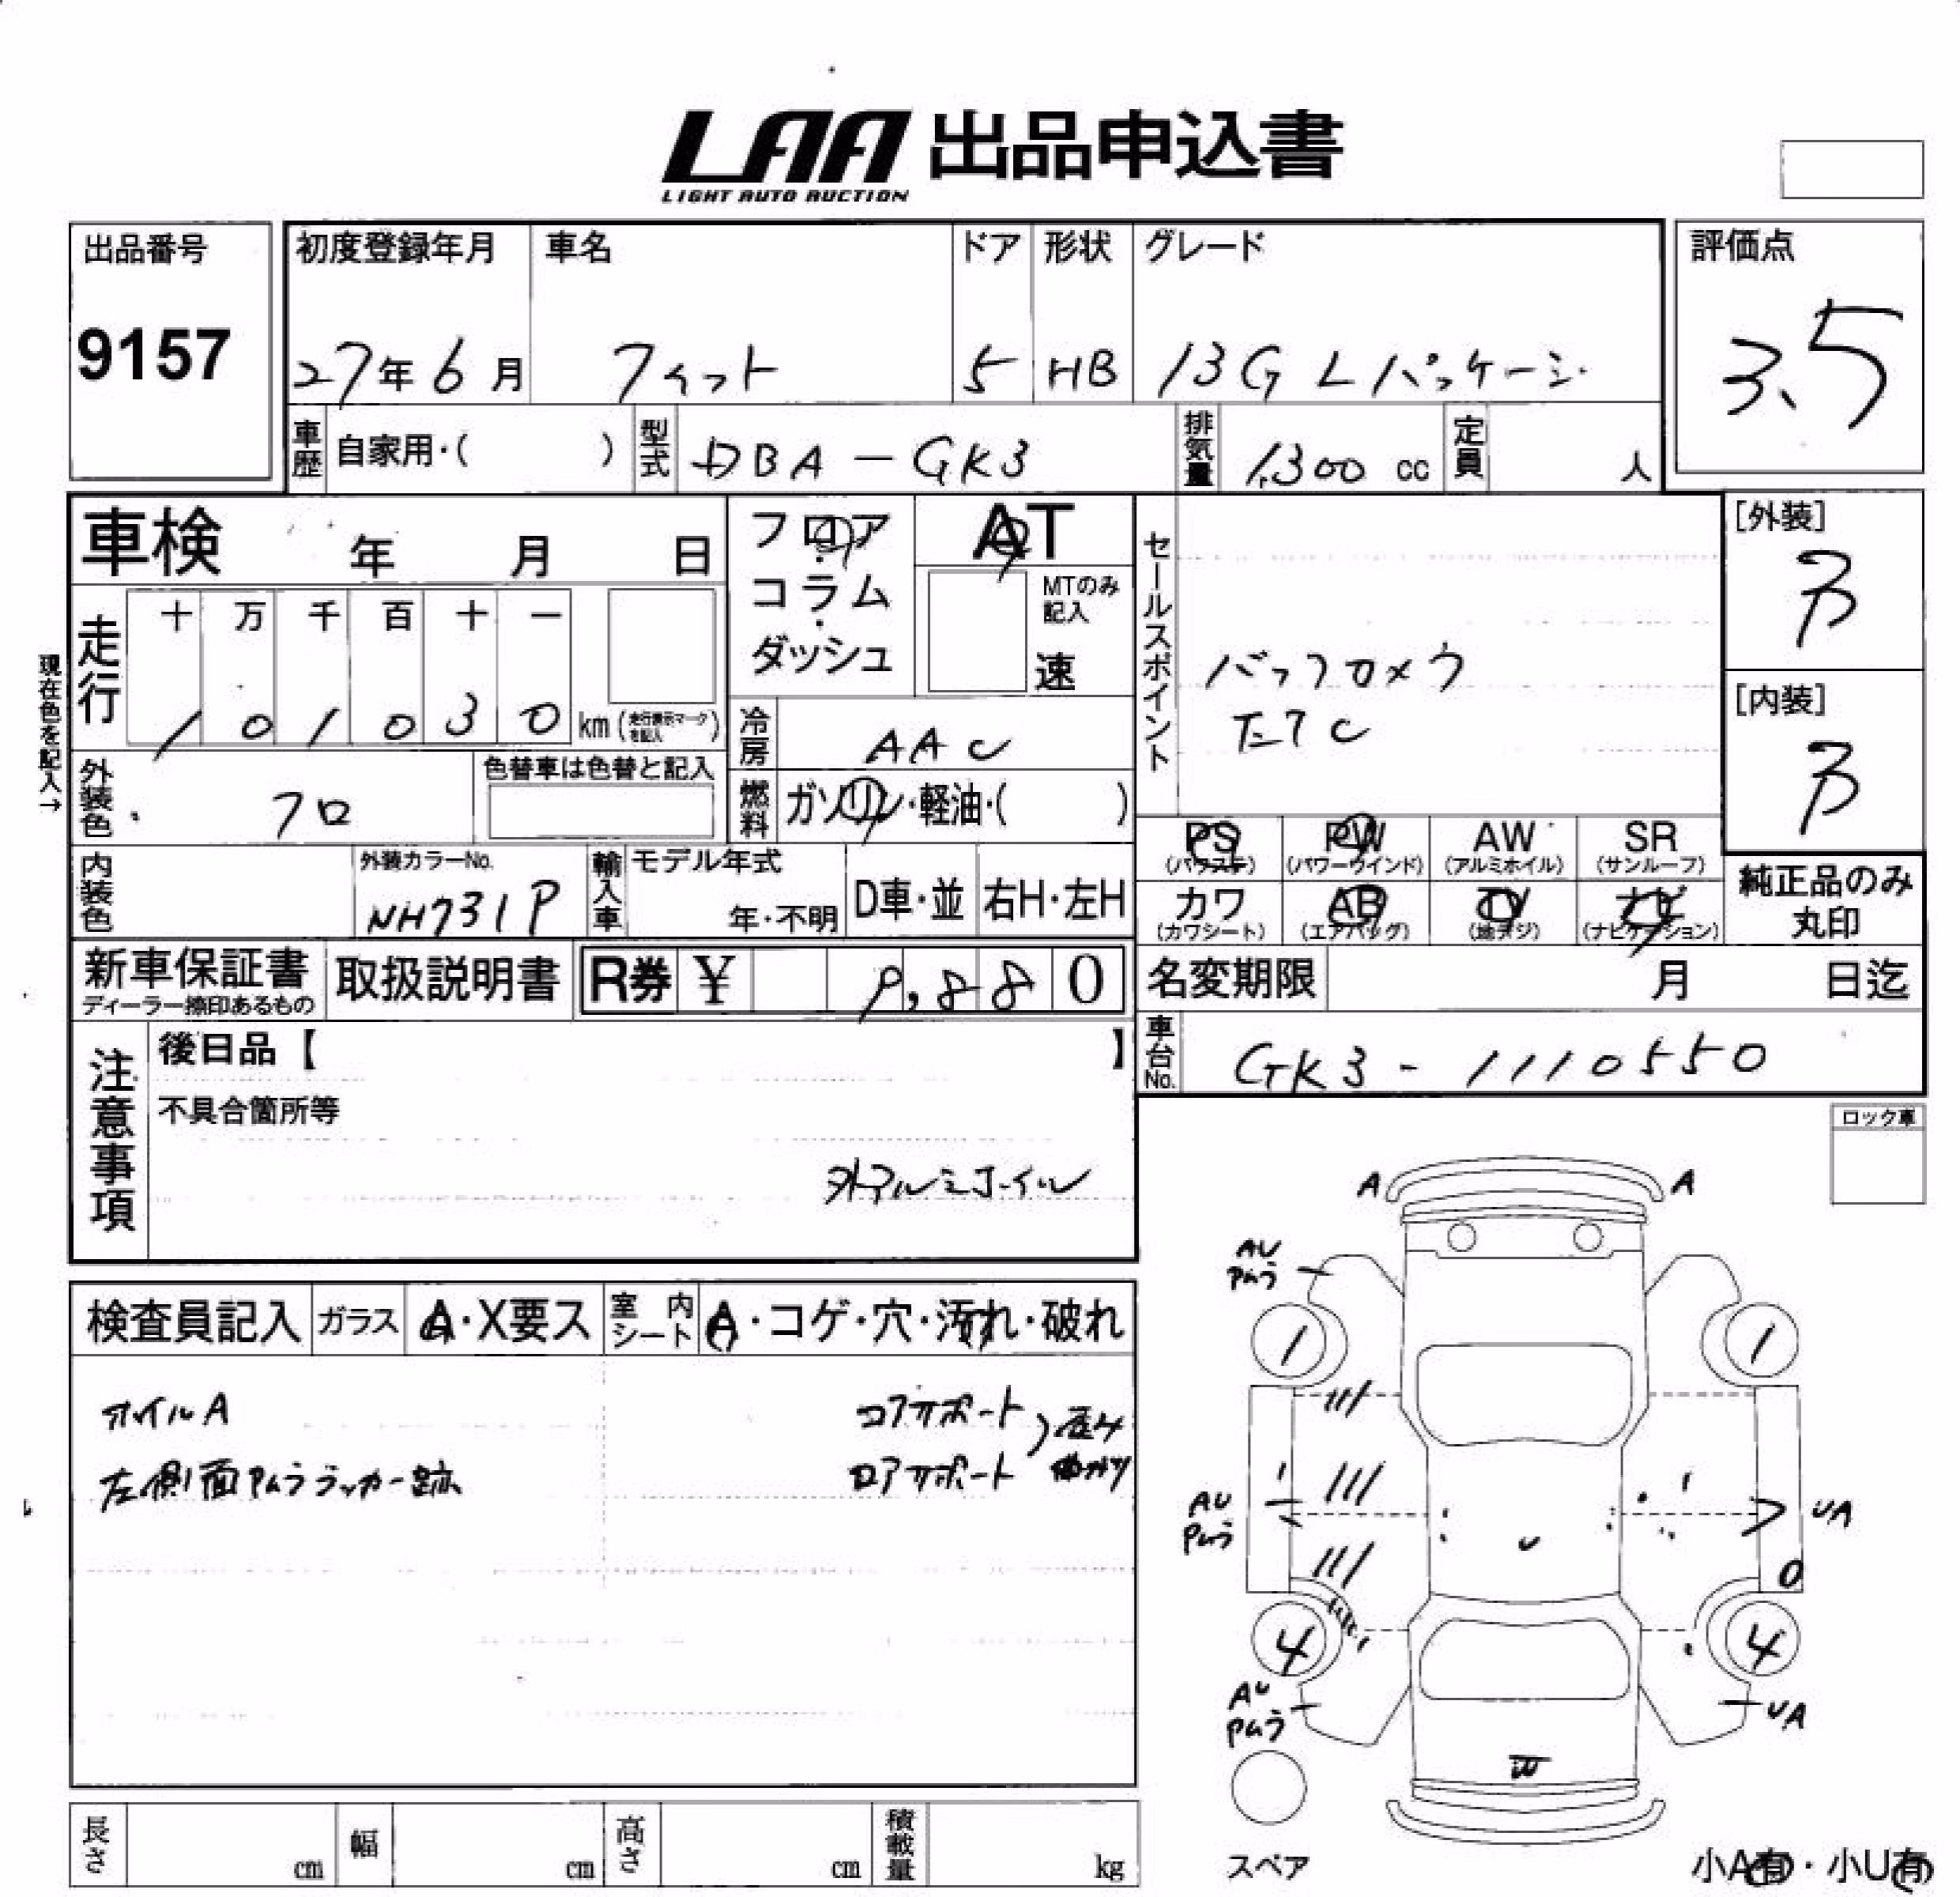 LAA 出品申込書
LIGHT AUTO AUCTION
出品番号
9157
初度登録年月
27年6月
車名
フィット
ドア
5
形状
HB
グレード
13G Lパッケージ
評価点
3.5
車歴
自家用・( )
型式
DBA-GK3
排気量
1,300 cc
定員
人
車検 年 月 日
フロア・コラム・ダッシュ
AT
MTのみ記入
速
セールスポイント
バックカメラ
ETC
[外装]
[内装]
現在色を記入→
走行
十 万 千 百 十 一
1 0 1 0 3 0 km (走行表示マークを記入)
冷房
AAC
外装色
クロ
色替車は色替と記入
燃料
ガソリン・軽油・( )
PS (パワステ)
PW (パワーウインド)
AW (アルミホイル)
SR (サンルーフ)
カワ (カワシート)
AB (エアバッグ)
TV (地デジ)
ナビ (ナビゲーション)
純正品のみ丸印
内装色
外装カラーNo.
NH731P
輸入車
モデル年式
年・不明
D車・並
右H・左H
新車保証書
ディーラー捺印あるもの
取扱説明書
R券 ¥ 9,880
名変期限 月 日迄
車台No.
GK3-1110550
注意事項
後日品【 】
不具合箇所等
外アルミホイル
ロック車
検査員記入
ガラス
A・X要ス
室内シート
A・コゲ・穴・汚れ・破れ
ホイルA
コアサポート
左側面Pムララッカー跡
ロアサポート
A A
AU
Pムラ
1 1
AU
Pムラ
UA
4 4
AU
Pムラ
UA
W
スペア
長さ cm
幅 cm
高さ cm
積載量 kg
小A有・小U有